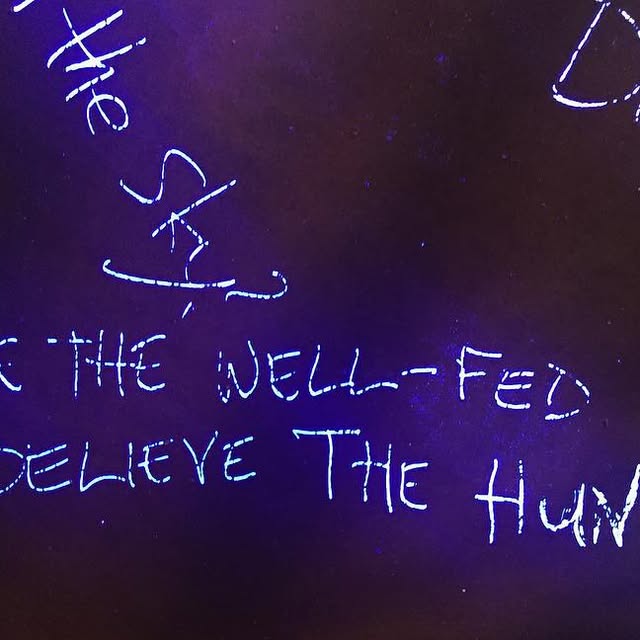 the
Sky
THE WELL-FED
BELIEVE THE HUN